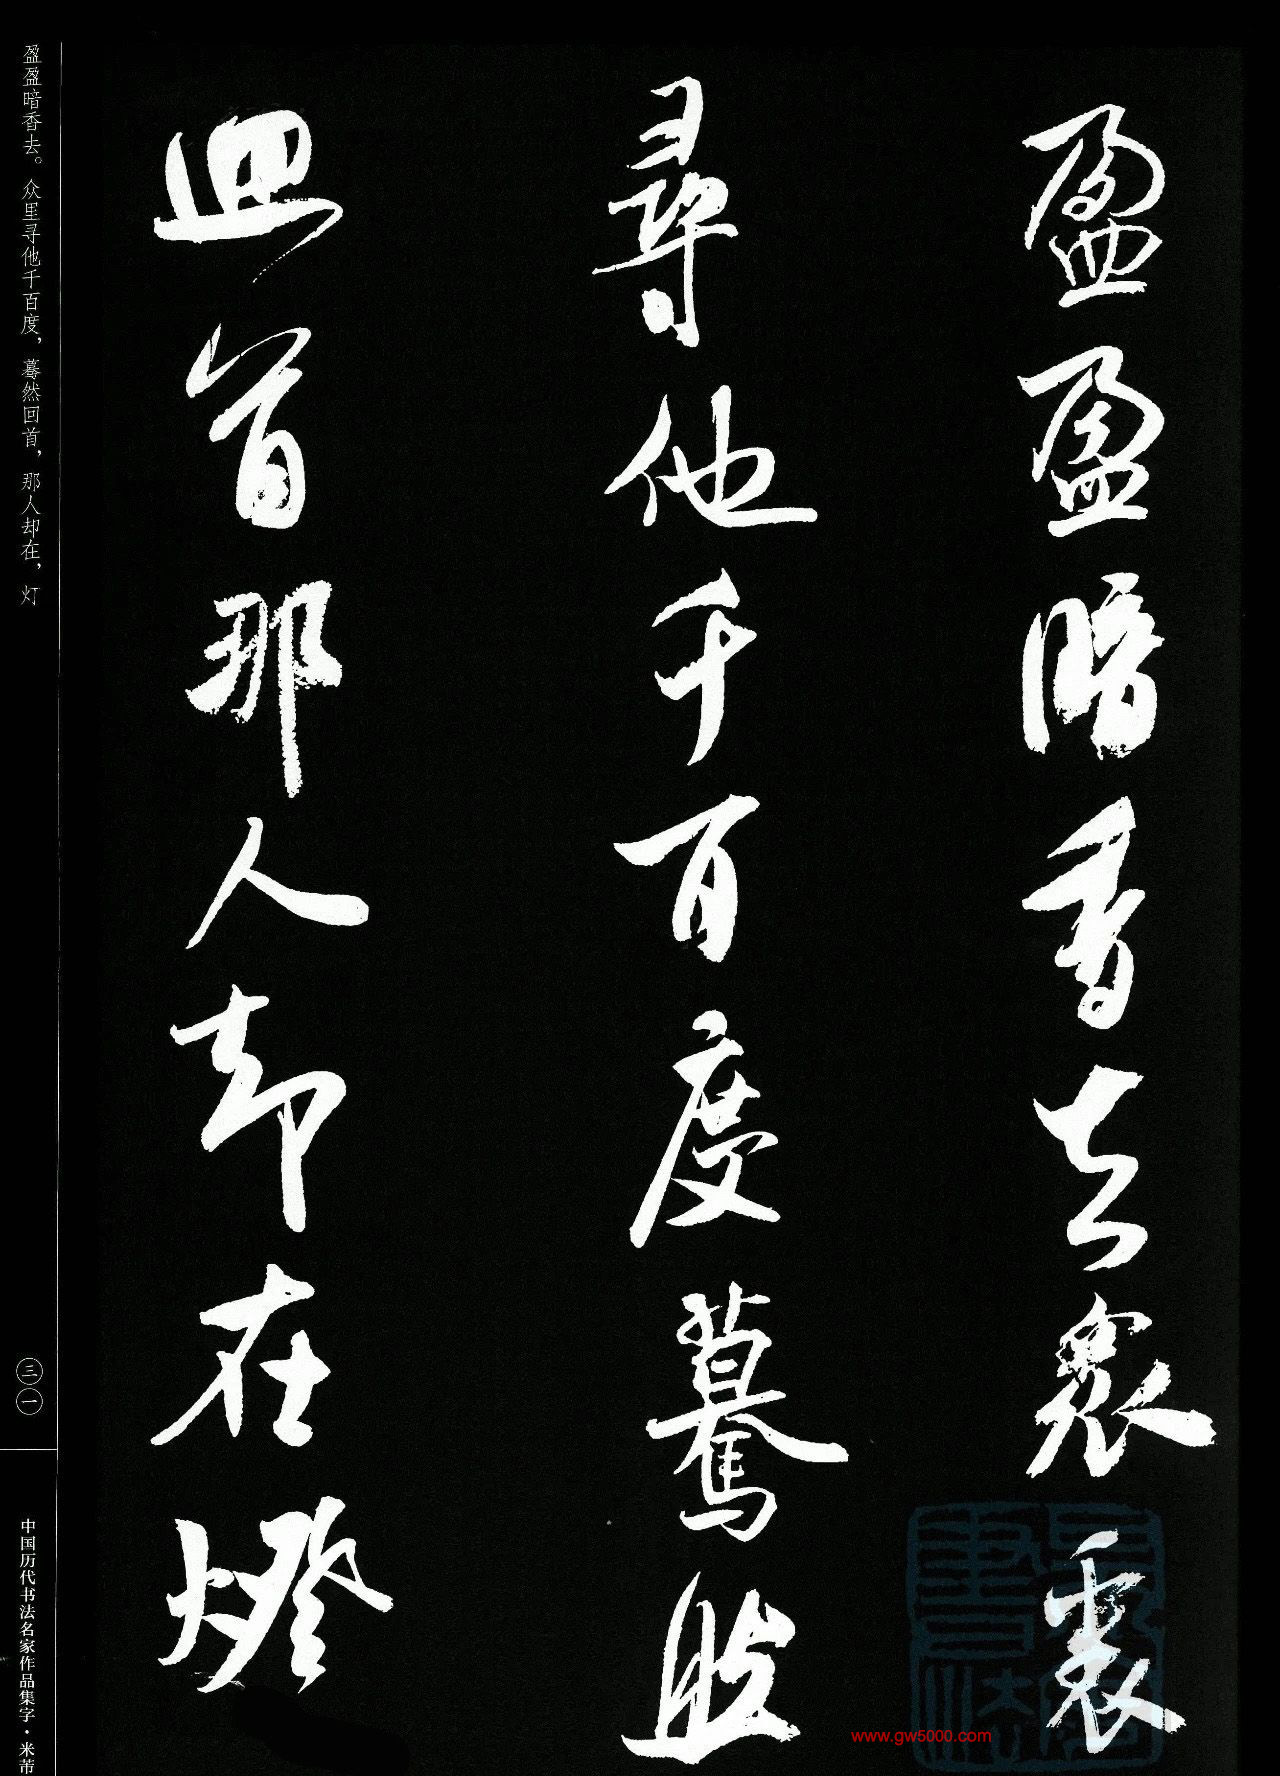 盈盈暗香去眾裏
尋他千百度驀然
迴首那人却在燈
盈盈暗香去。众里寻他千百度，蓦然回首，那人却在，灯
三一
中国历代书法名家作品集字·米芾
www.gw5000.com